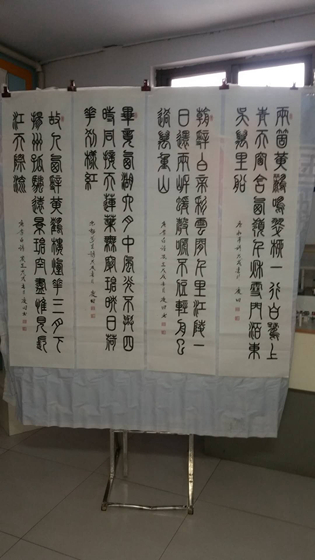 兩箇黃鸝鳴翠柳一行白鷺上
青天窗含西嶺千秋雪門泊東
吳萬里船
朝辭白帝彩雲間千里江陵一
日還兩岸猿聲啼不住輕舟已
過萬重山
畢竟西湖六月中風光不與四
時同接天蓮葉無窮碧映日荷
花別樣紅
故人西辭黃鶴樓煙花三月下
揚州孤帆遠影碧空盡惟見長
江天際流